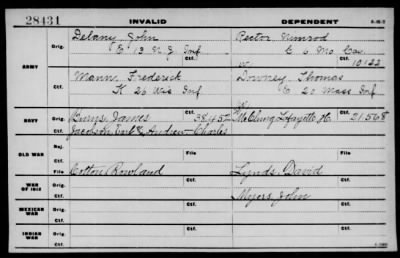 28431 INVALID DEPENDENT
Orig. Delany John Rector Nimrod
E 13 N.J. Inf C 6 Mo Cav
ARMY
Ctf. W 10122
Mann, Frederick Downey, Thomas
K 26 Wis Inf C 20 Mass Inf
NAVY Orig. Burns, James 38452 McClung Lafayette H. 21568
Ctf. Jacobson, Andrew Charles
OLD WAR Inj.
Ctf. File
WAR OF 1812 File Cotton Rowland Lynds David
Ctf.
MEXICAN WAR Orig. Myers, John
Ctf.
INDIAN WAR Orig.
Ctf.